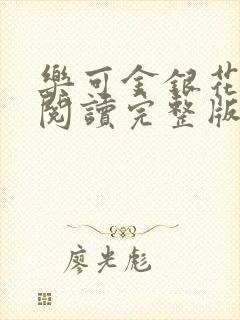 樂可金銀花
閱讀完整版
廖光彪